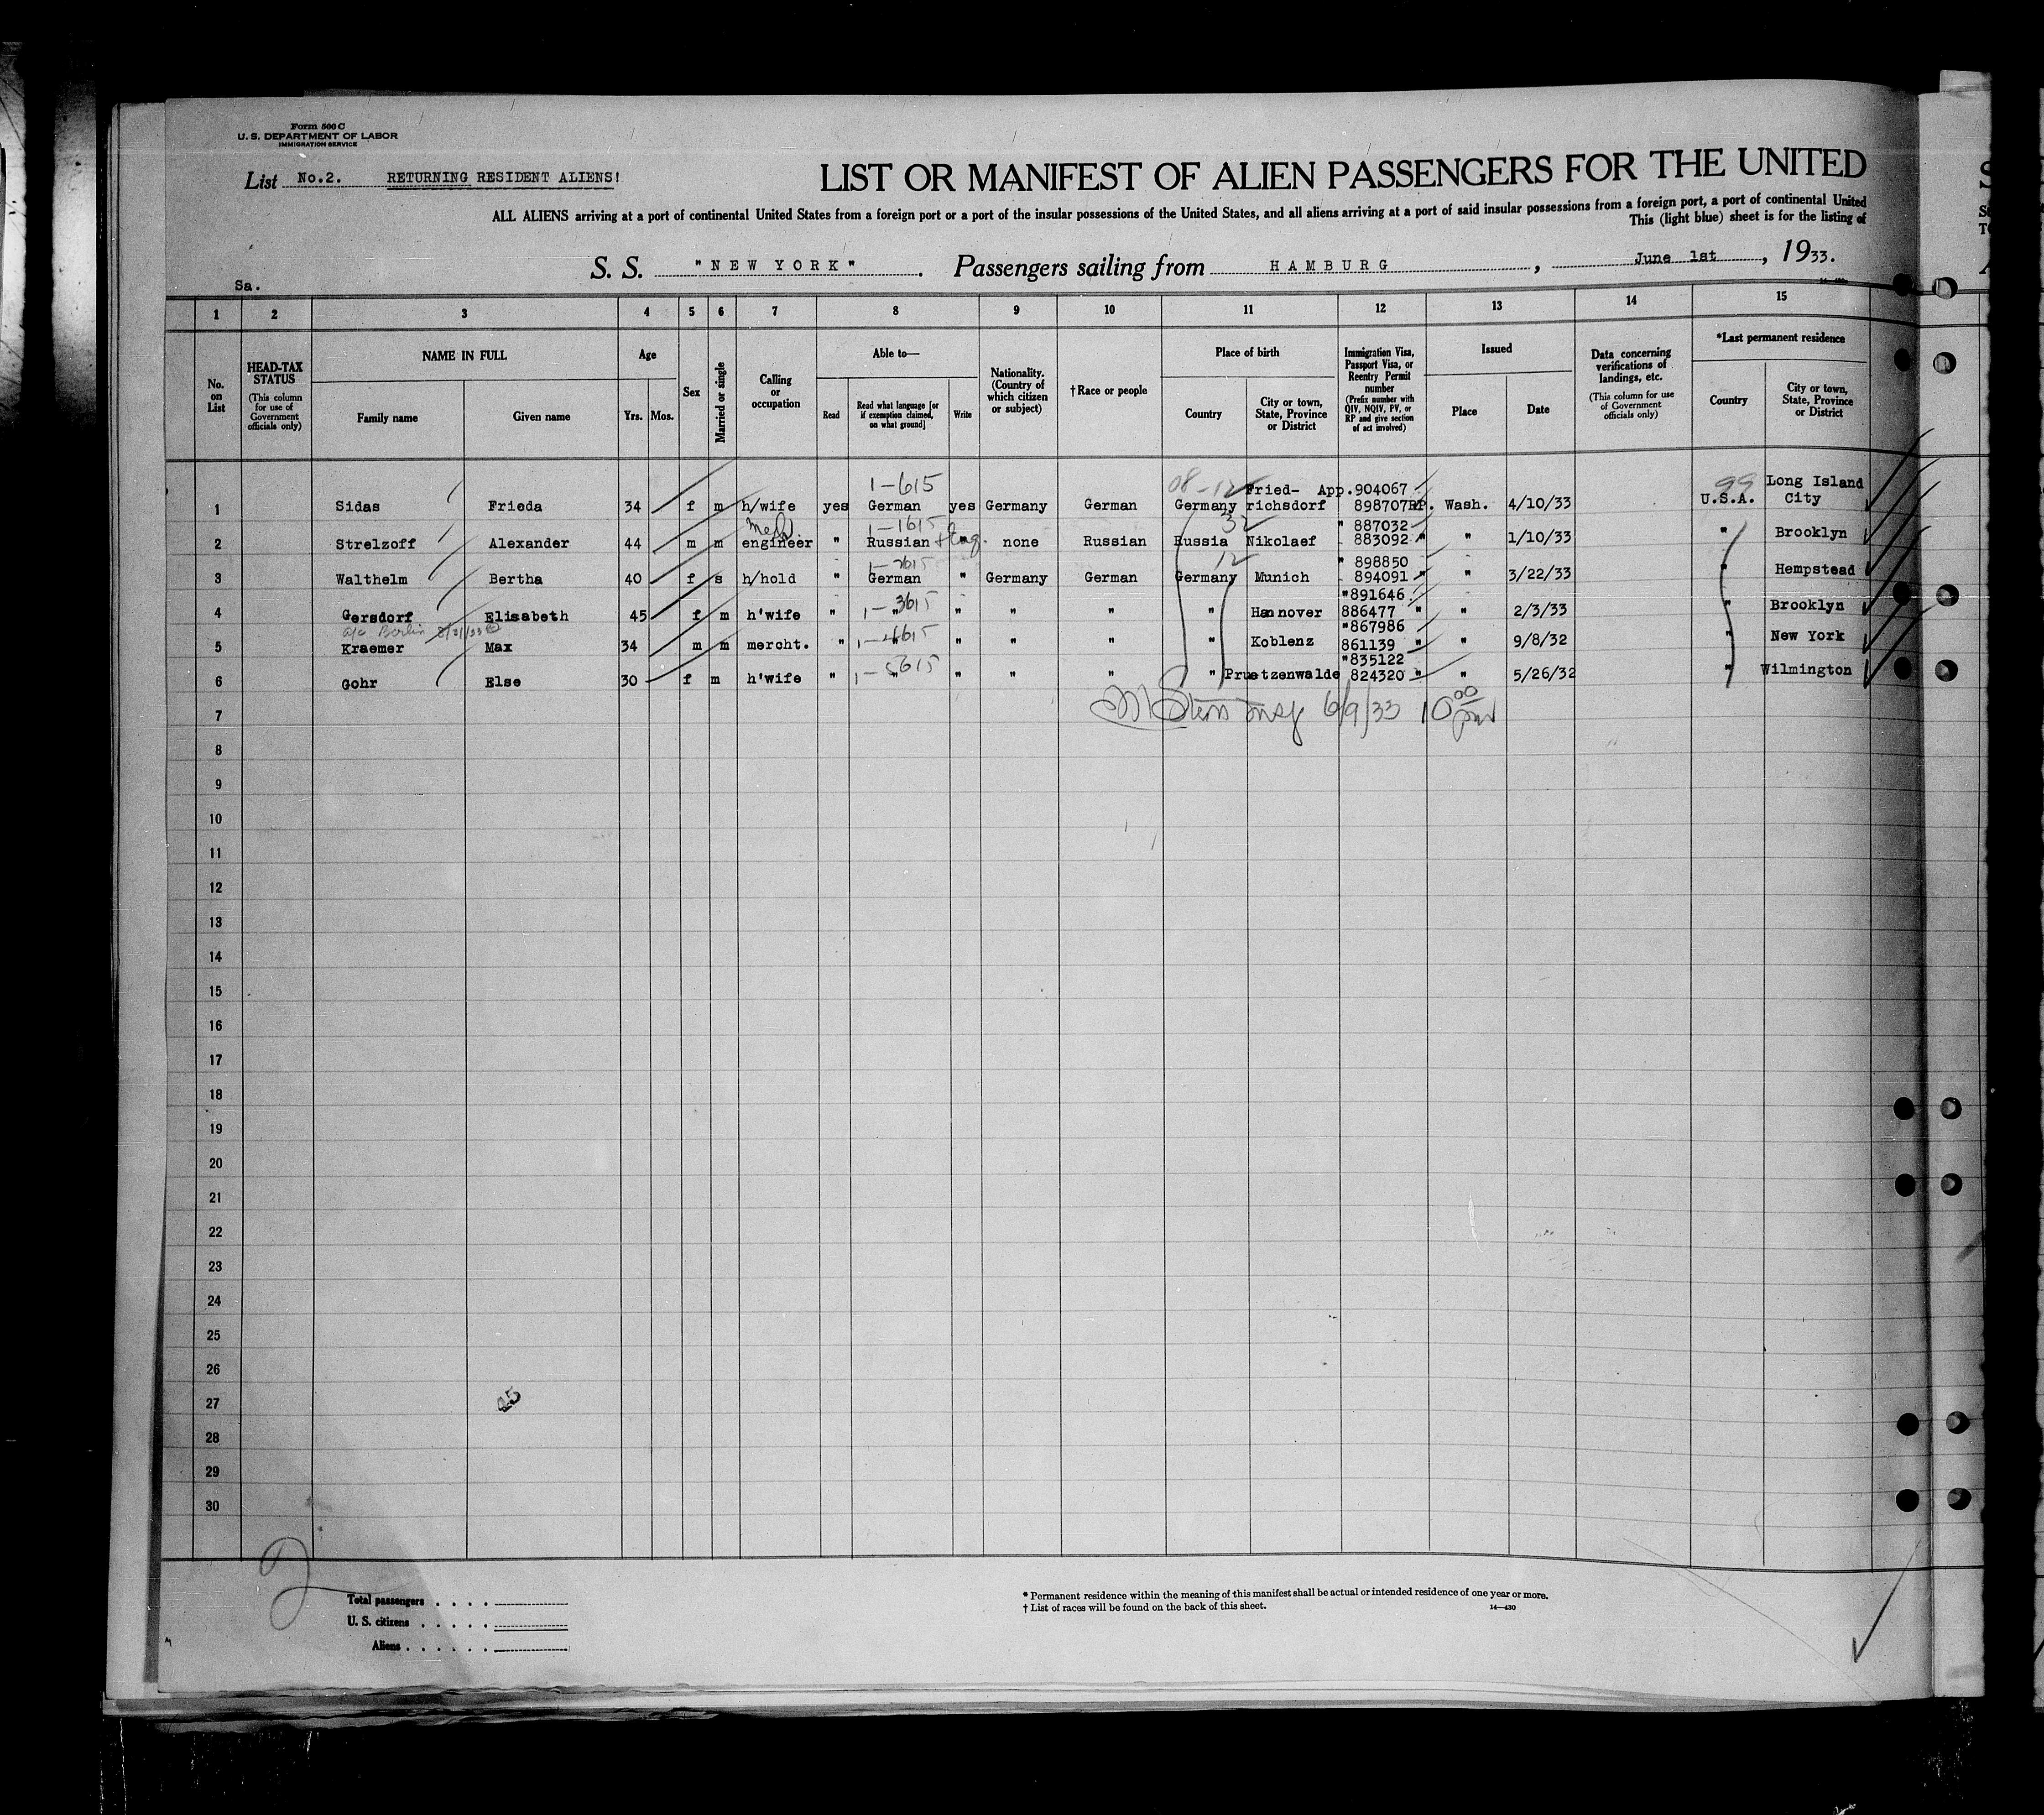 Form 500 C
U. S. DEPARTMENT OF LABOR
IMMIGRATION SERVICE
List No.2. RETURNING RESIDENT ALIENS!
LIST OR MANIFEST OF ALIEN PASSENGERS FOR THE UNITED
ALL ALIENS arriving at a port of continental United States from a foreign port or a port of the insular possessions of the United States, and all aliens arriving at a port of said insular possessions from a foreign port, a port of continental United
This (light blue) sheet is for the listing of
S. S. "NEW YORK". Passengers sailing from HAMBURG, June 1st, 1933.
Sa.
1 2 3 4 5 6 7 8 9 10 11 12 13 14 15
No. on List
HEAD-TAX STATUS
(This column for use of Government officials only)
NAME IN FULL
Family name
Given name
Age
Yrs. Mos.
Sex
Married or single
Calling or occupation
Able to—
Read
Read what language [or if exemption claimed, on what ground]
Write
Nationality. (Country of which citizen or subject)
†Race or people
Place of birth
Country
City or town, State, Province or District
Immigration Visa, Passport Visa, or Reentry Permit number
(Prefix number with QIV, NQIV, PV, or RP and give section of act involved)
Issued
Place
Date
Data concerning verifications of landings, etc.
(This column for use of Government officials only)
*Last permanent residence
Country
City or town, State, Province or District
1-615 08-12 Fried- App.904067 99 Long Island
1 Sidas Frieda 34 f m h/wife yes German yes Germany German Germany richsdorf 898707RP. Wash. 4/10/33 U.S.A. City
Mech. 1-1615 32 " 887032
2 Strelzoff Alexander 44 m m engineer " Russian + Eng. " none Russian Russia Nikolaef 883092 " " 1/10/33 " Brooklyn
1-2615 12 " 898850
3 Walthelm Bertha 40 f s h/hold " German " Germany German Germany Munich 894091 " " 3/22/33 " Hempstead
1-3615 "891646
4 Gersdorf Elisabeth 45 f m h'wife " " " " " " Hannover 886477 " " 2/3/33 " Brooklyn
a/c Berlin 8/21/33 "867986
5 Kraemer Max 34 m m mercht. " 1-4615 " " " " Koblenz 861139 " " 9/8/32 " New York
"835122
6 Gohr Else 30 f m h'wife " 1-5615 " " " " Pruetzenwalde 824320 " " 5/26/32 " Wilmington
7 M Stern Insp 6/9/33 10 00 pm
8
9
10
11
12
13
14
15
16
17
18
19
20
21
22
23
24
25
26
27
25
28
29
30
2
Total passengers
U. S. citizens
Aliens
* Permanent residence within the meaning of this manifest shall be actual or intended residence of one year or more.
† List of races will be found on the back of this sheet.
14—430